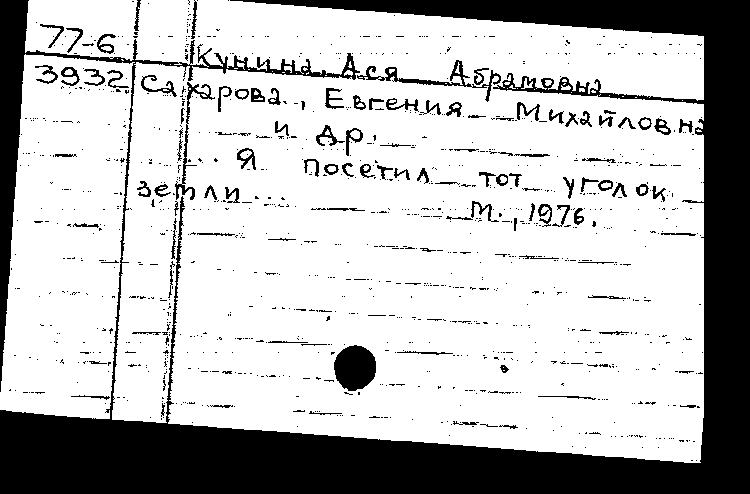 77-6
Кунина, Ася Абрамовна
3932
Сахарова, Евгения Михайловна
и др.
... Я посетил тот уголок
земли...
М., 1976.